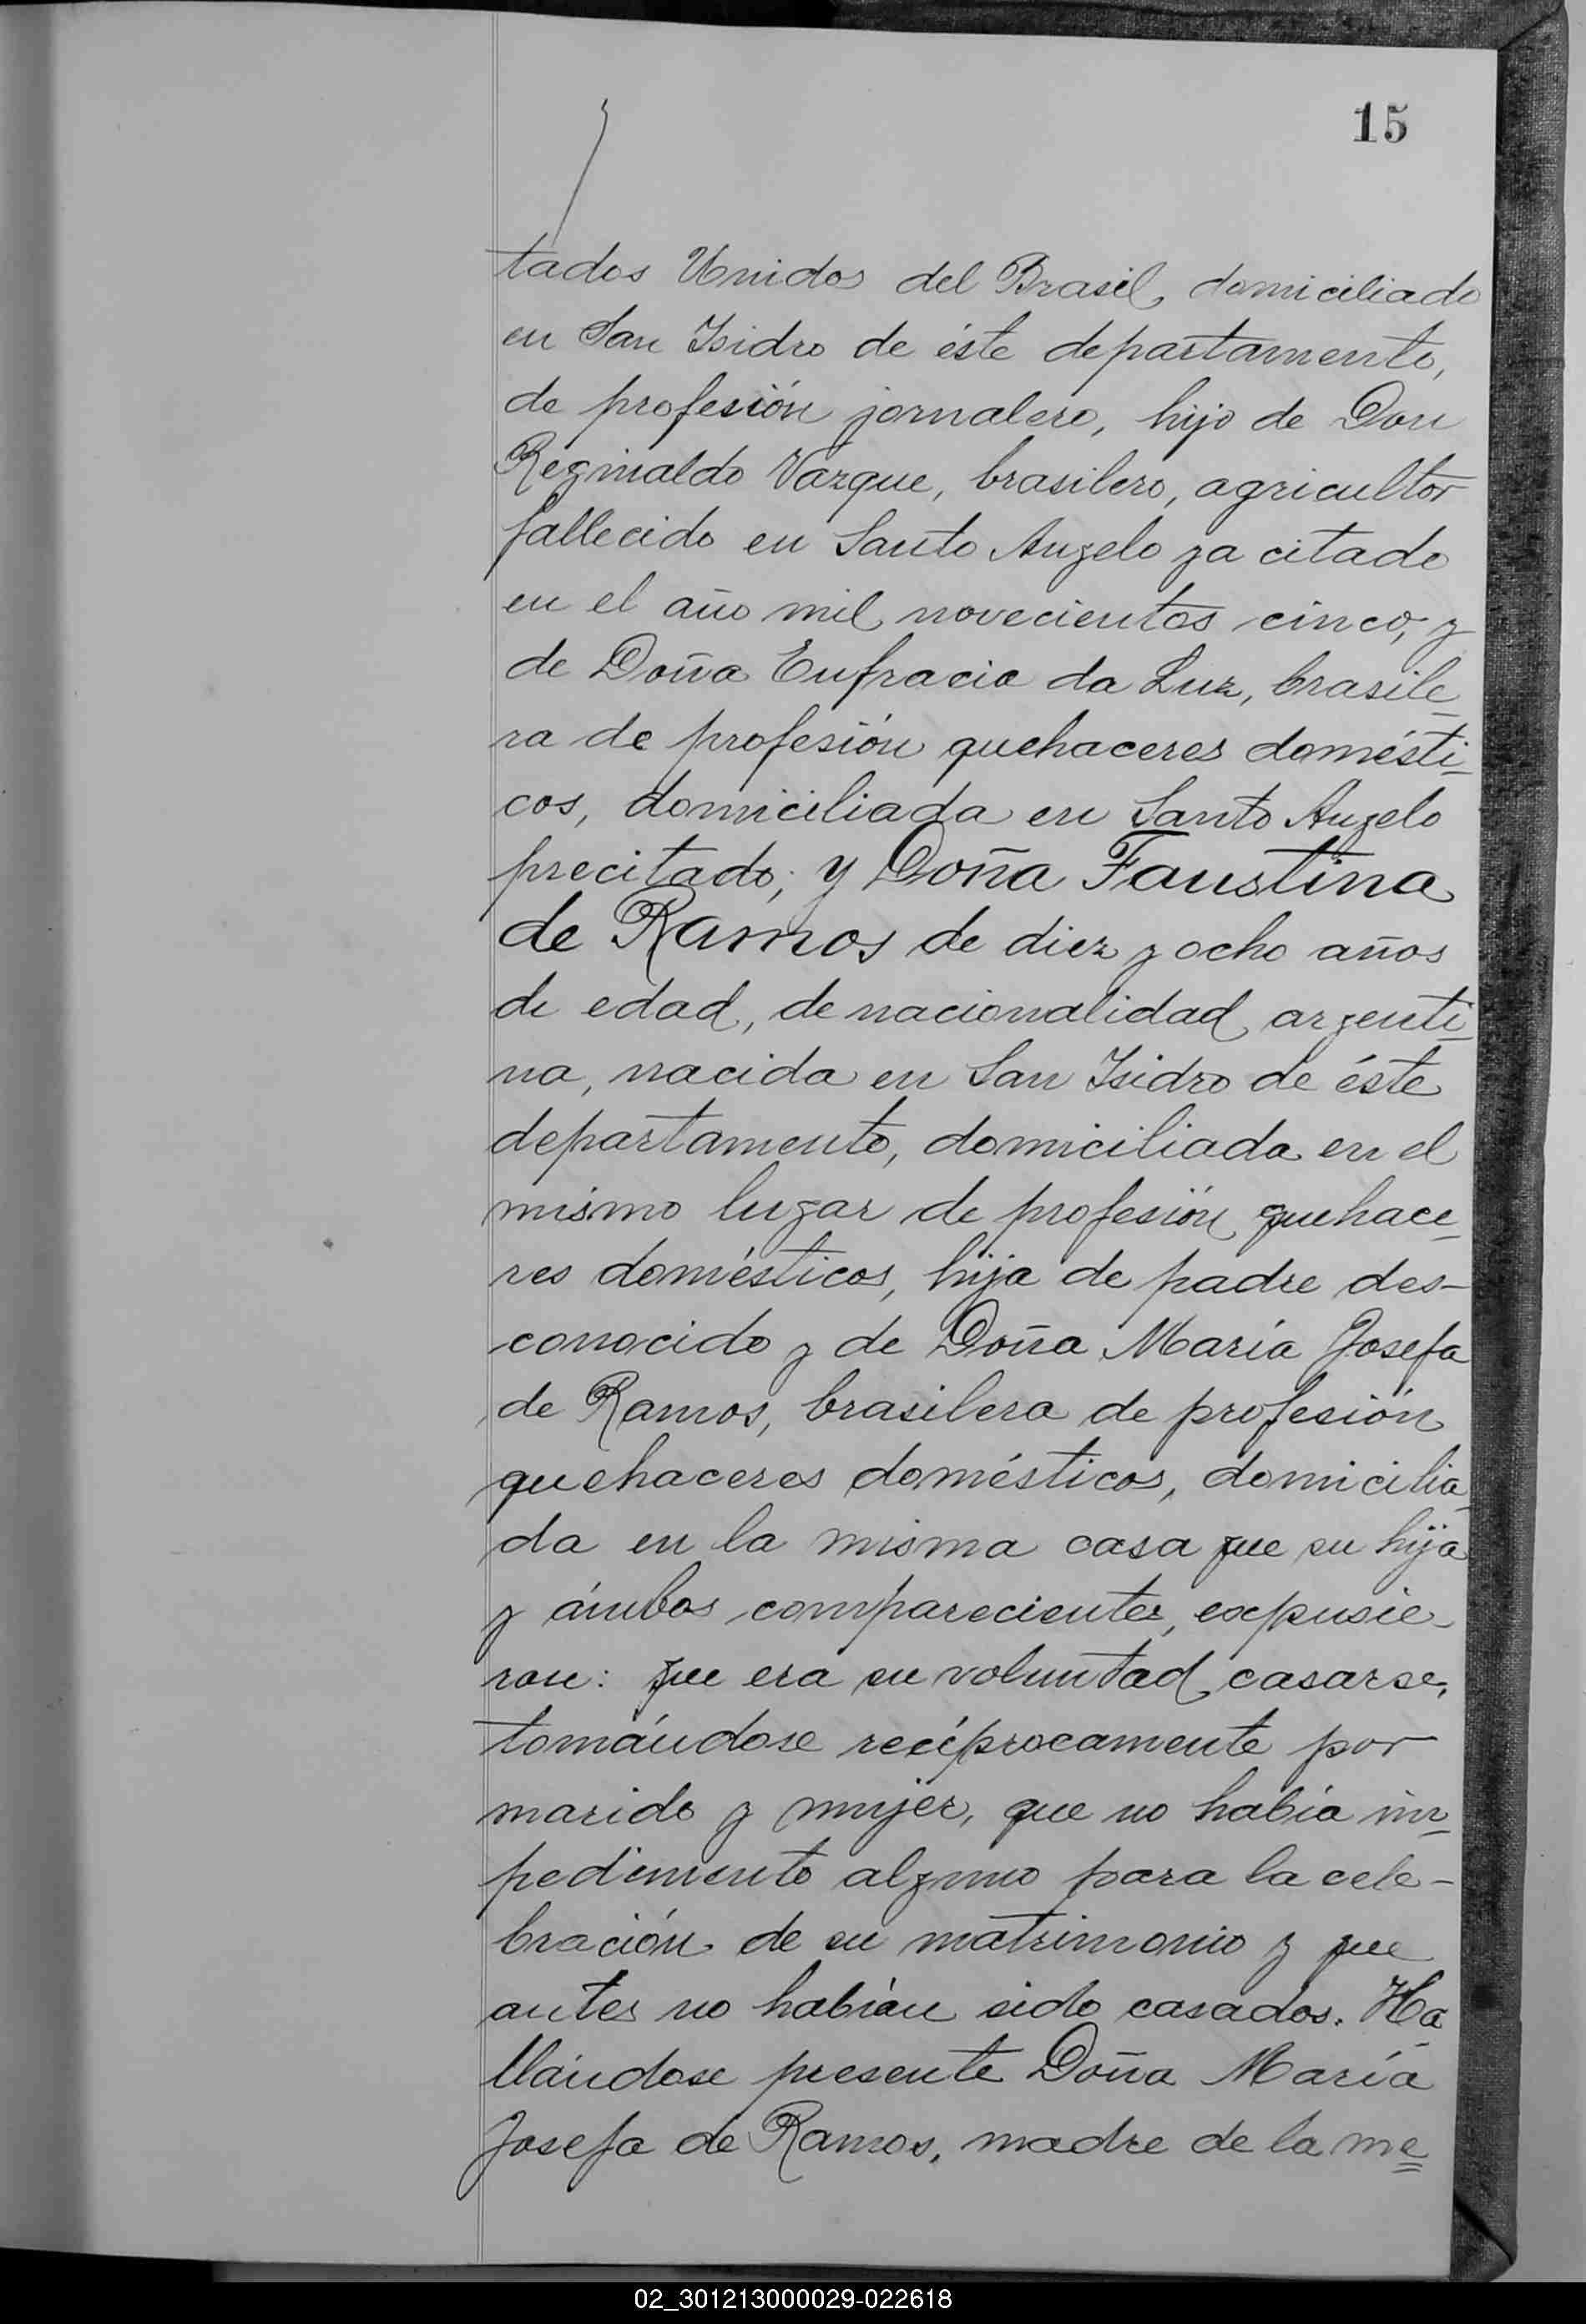 15
tados Unidos del Brasil, domiciliado
en San Isidro de éste departamento,
de profesión jornalero, hijo de Don
Reginaldo Vazque, brasilero, agricultor
fallecido en Santo Angelo ya citado
en el año mil novecientos cinco, y
de Doña Eufracia da Luz, brasile_
ra de profesión quehaceres domésti_
cos, domiciliada en Santo Angelo
precitado; y Doña Faustina
de Ramos de diez y ocho años
de edad, de nacionalidad argenti_
na, nacida en San Isidro de éste
departamento, domiciliada en el
mismo lugar de profesión quehace_
res domésticos, hija de padre des-
conocido y de Doña María Josefa
de Ramos, brasilera de profesión
quehaceres domésticos, domicilia_
da en la misma casa que su hija
y ámbos comparecientes, expusie-
ron: que era su voluntad casarse,
tomándose recíprocamente por
marido y mujer, que no había im_
pedimento alguno para la cele-
bración de su matrimonio y que
antes no habían sido casados. Ha_
llándose presente Doña María
Josefa de Ramos, madre de la me=
02_301213000029-022618